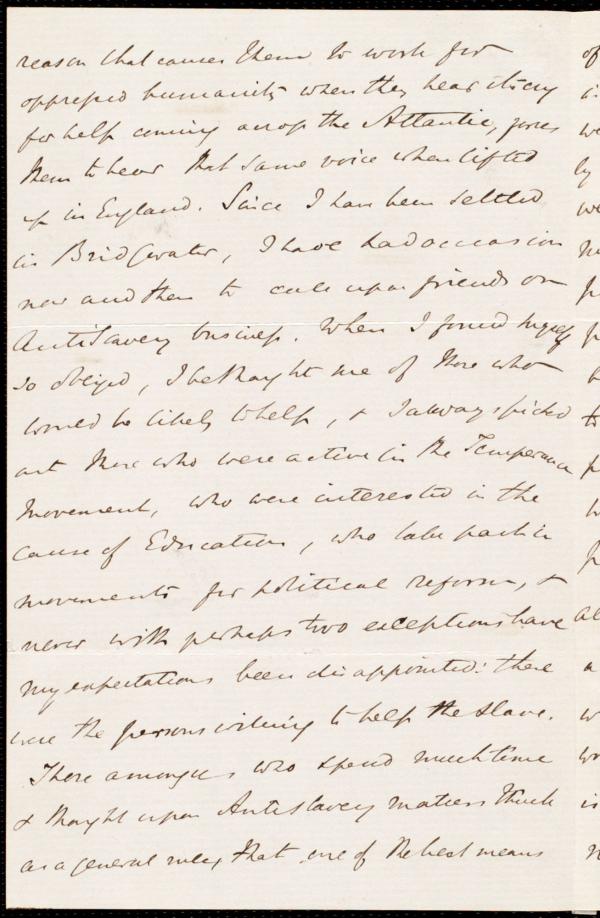 reason that causes them to work for
oppressed humanity when they hear its cry
for help coming across the Atlantic, forces
them to hear that same voice when lifted
up in England. Since I have been settled
in Bridgwater, I have had occasion
now and then to call upon friends on
AntiSlavery business. When I found myself
so obliged, I bethought me of those who
would be likely to help, & I always picked
out those who were active in the Temperance
Movement, who were interested in the
cause of Education, who take part in
movements for political reform, &
never with perhaps two exceptions have
my expectations been disappointed: these
were the persons willing to help the slave.
Those amongst us who spend much time
& thought upon Antislavery matters think
as a general rule, that one of the best means
of
we
by
we
to
al
a
w
is